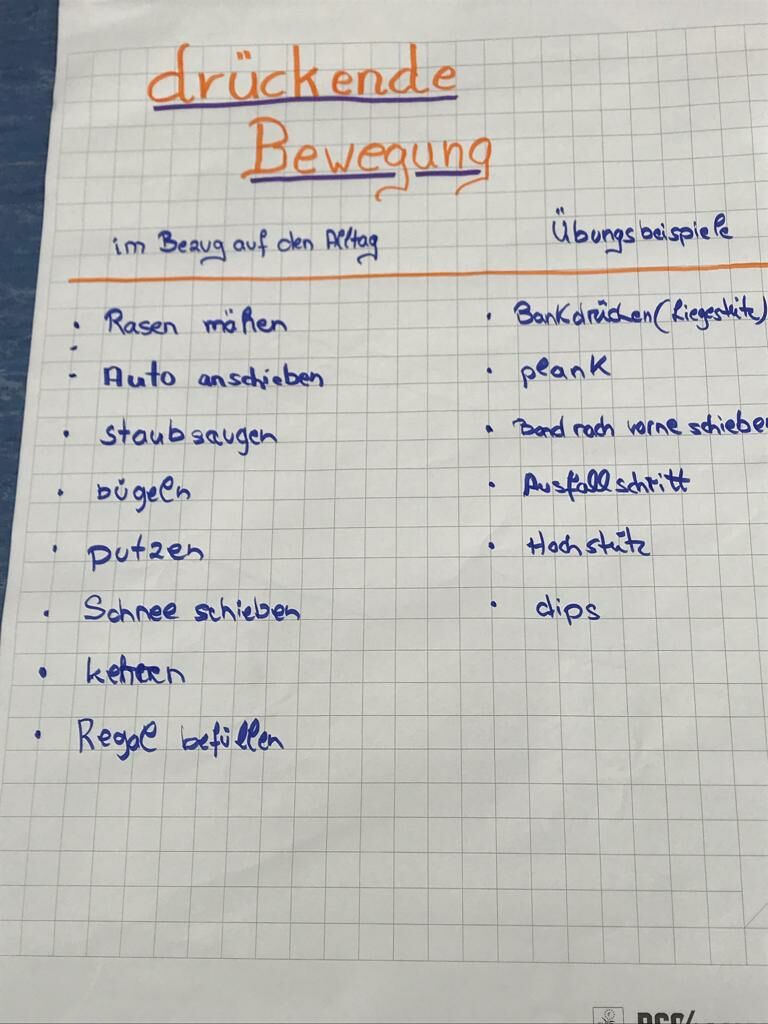 drückende
Bewegung
im Bezug auf den Alltag
Übungsbeispiele
• Rasen mähen
• Auto anschieben
• staubsaugen
• bügeln
• putzen
• Schnee schieben
• kehren
• Regal befüllen
• Bankdrücken (Liegestütz)
• plank
• Band nach vorne schieben
• Ausfallschritt
• Hochstütz
• dips